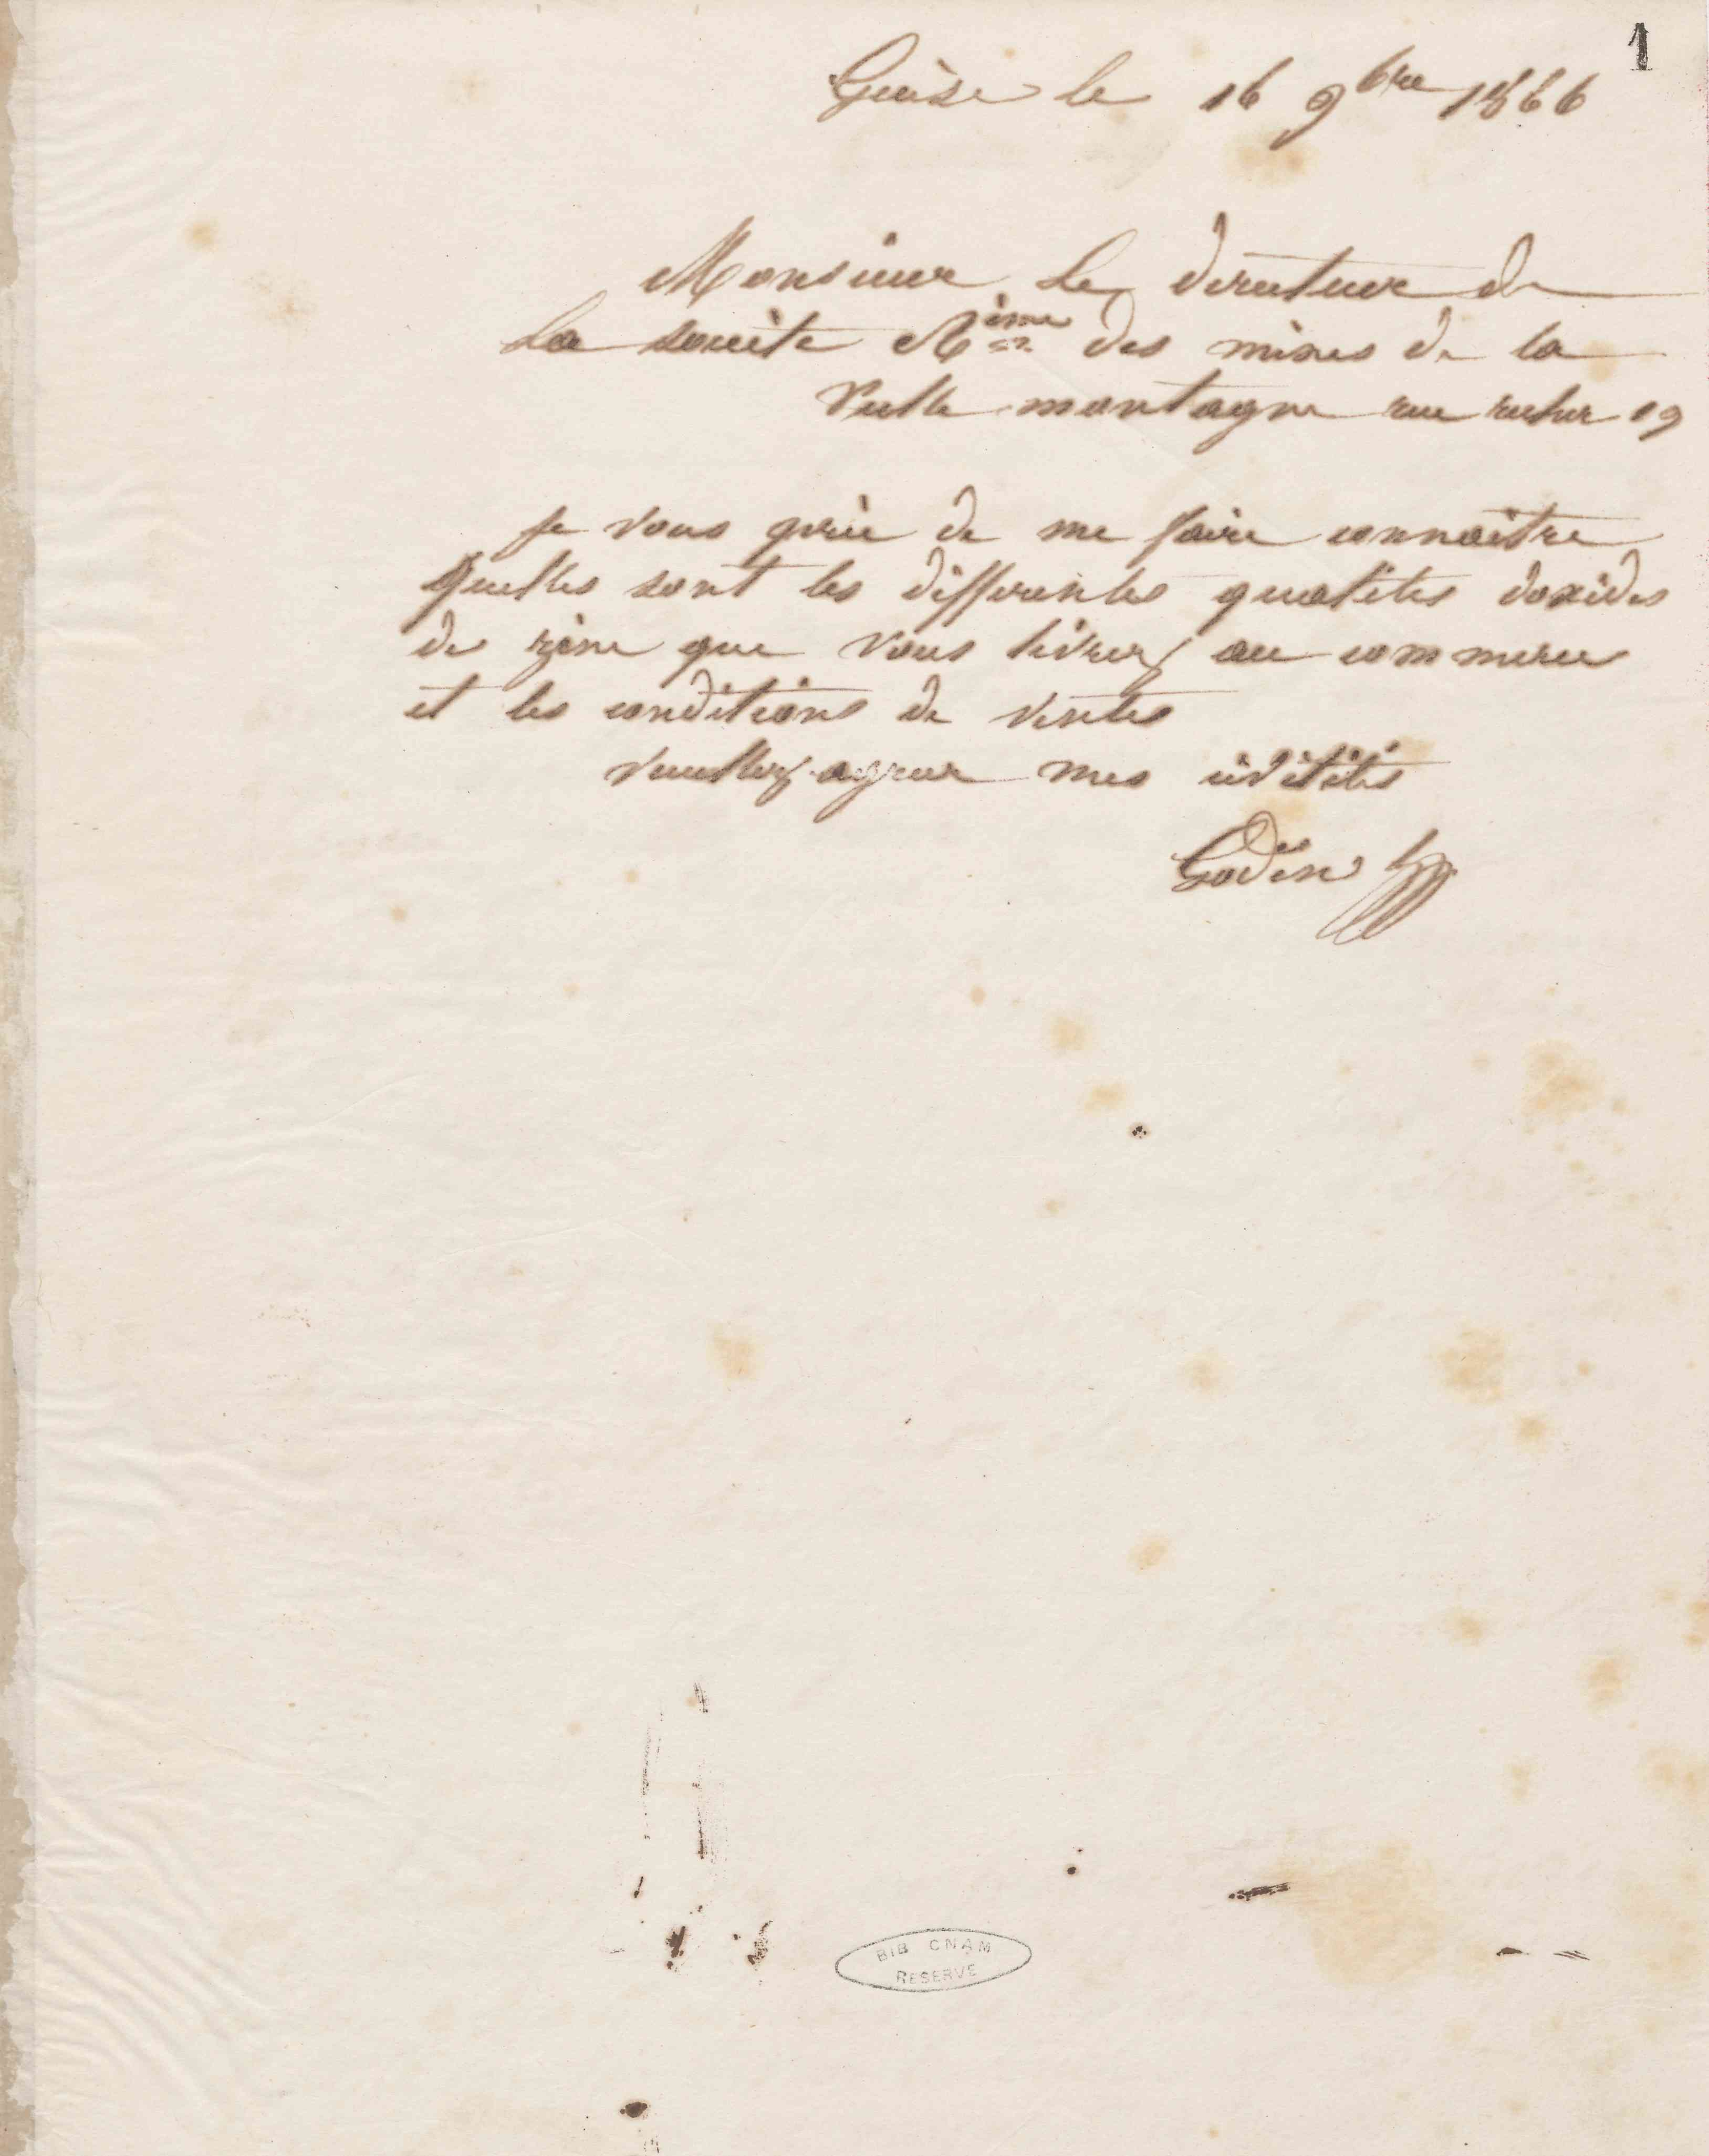 1
Guise le 16 9bre 1866
Monsieur Le directeur de
La societe Ame des mines de la
Vielle montagne rue richer 19
Je vous prie de me faire connaitre
Quelles sont les differentes qualites doxides
de zinc que vous livrez au commerce
et les conditions de ventes
veuillez agreer mes civilités
Godin
BIB CNAM
RESERVE